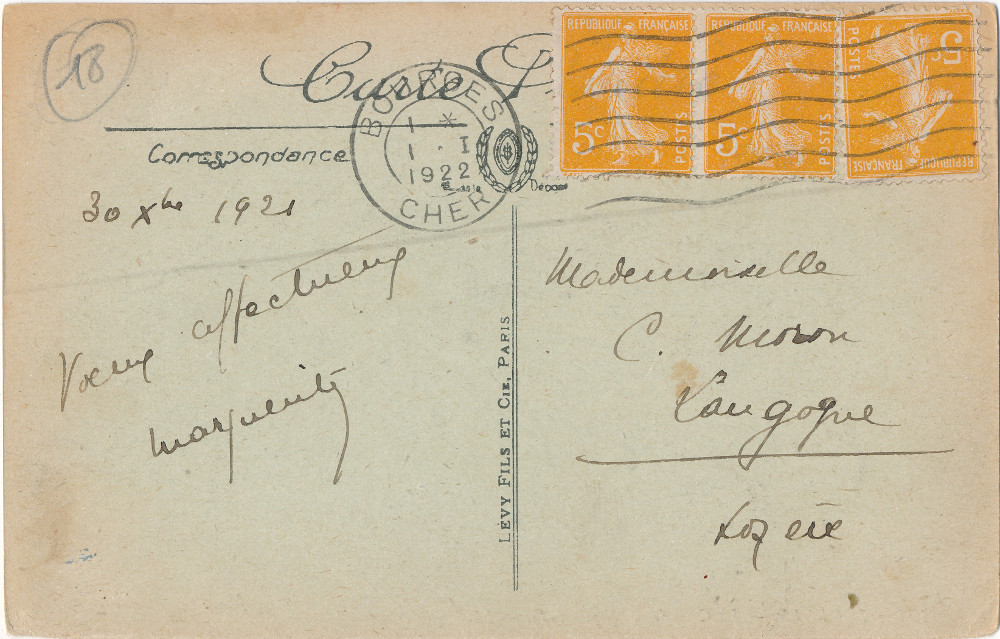 18
Carte
RÉPUBLIQUE FRANÇAISE
5c
POSTES
RÉPUBLIQUE FRANÇAISE
5c
POSTES
RÉPUBLIQUE FRANÇAISE
5c
POSTES
BOURGES
1 *
1 . I
1922
CHER
Correspondance
30 Xbre 1921
Voeux affectueux
Marguerite
LÉVY FILS ET CIE, PARIS
Mademoiselle
C. Moron
Langogne
Lozère